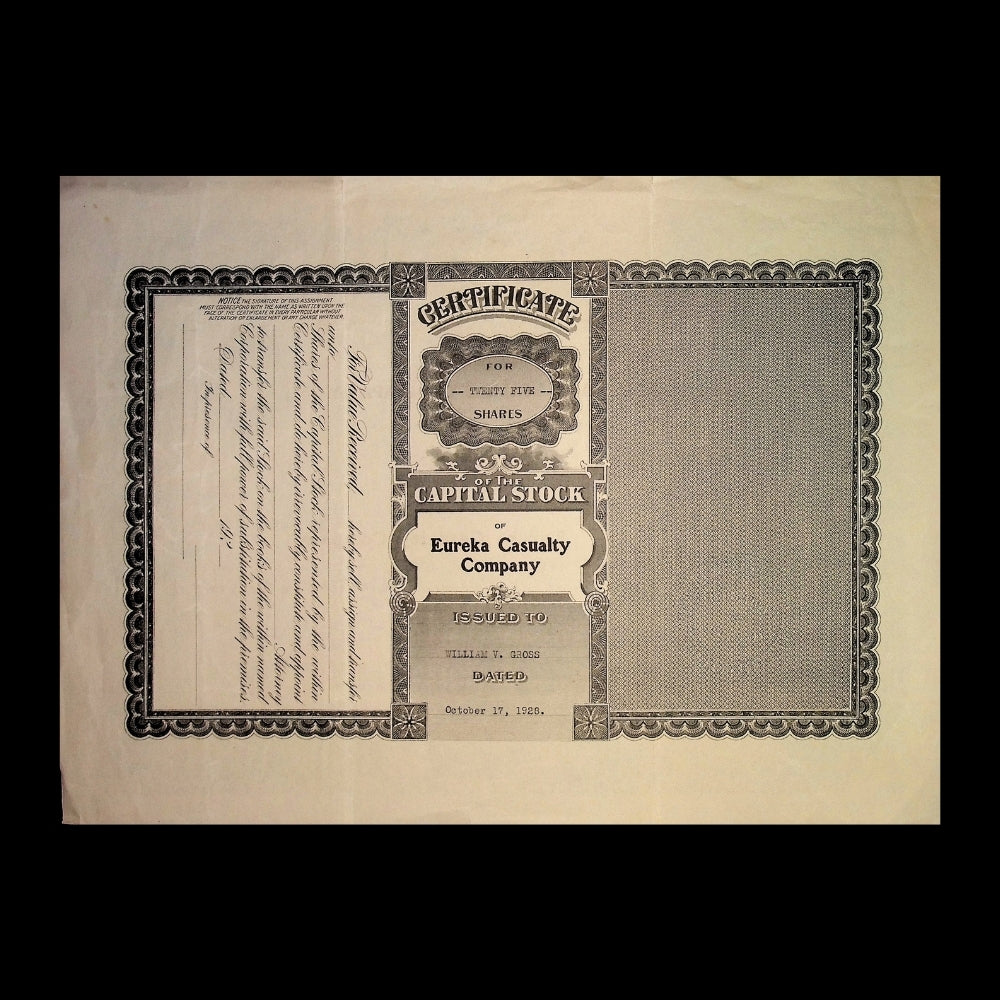 CERTIFICATE
FOR
-- TWENTY FIVE --
SHARES
OF THE
CAPITAL STOCK
OF
Eureka Casualty
Company
ISSUED TO
WILLIAM V. GROSS
DATED
October 17, 1928.
For Value Received, hereby sell, assign and transfer
unto
Shares of the Capital Stock represented by the within
Certificate and do hereby irrevocably constitute and appoint
Attorney
to transfer the said Stock on the books of the within named
Corporation with full power of substitution in the premises.
Dated 19
In presence of
NOTICE THE SIGNATURE OF THIS ASSIGNMENT
MUST CORRESPOND WITH THE NAME AS WRITTEN UPON THE
FACE OF THE CERTIFICATE IN EVERY PARTICULAR WITHOUT
ALTERATION OR ENLARGEMENT OR ANY CHANGE WHATEVER.